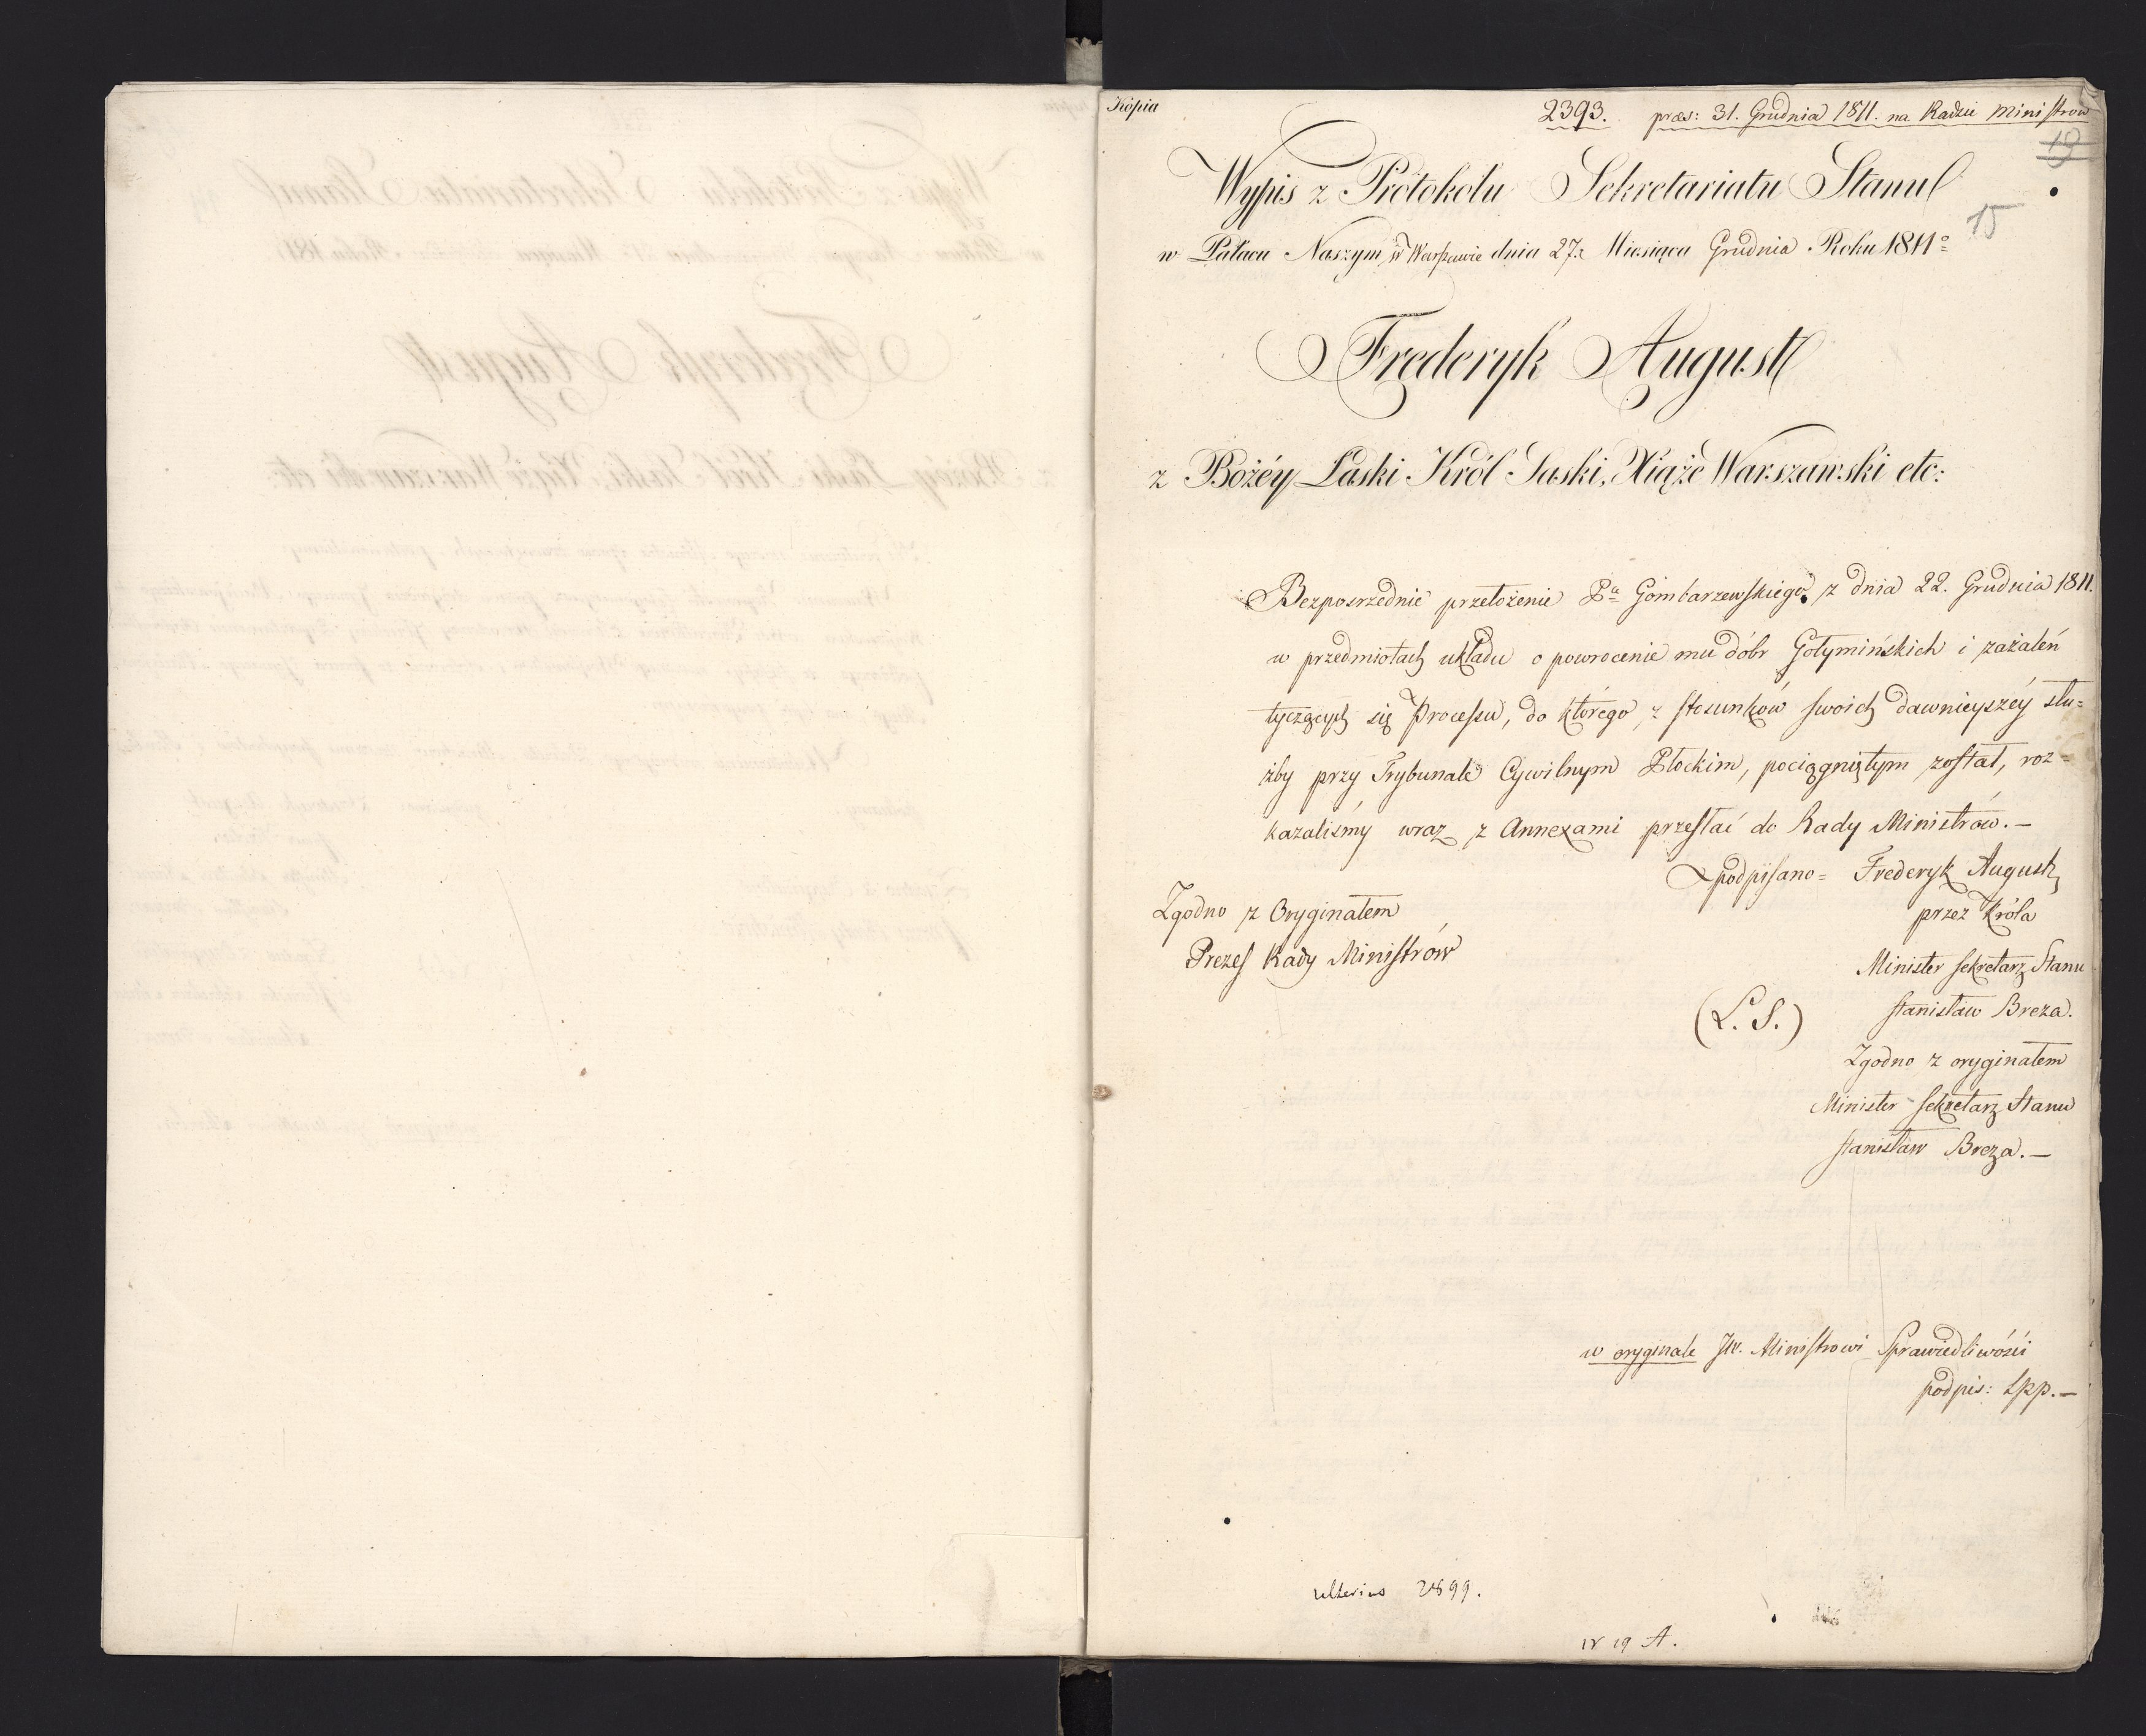 Kopia
2393. præs: 31. Grudnia 1811. na Radzie Ministrow
19
Wypis z Protokołu Sekretariatu Stanu
15
w Pałacu Naszym w Warszawie dnia 27. Miesiąca Grudnia Roku 1811o
Frederyk August
z Bożéy Łaski Król Saski, Xiąże Warszawski etc:
Bezposrzednie przełożenie Pa Gombarzewskiego z dnia 22. Grudnia 1811.
w przedmiotach układu o powrocenie mu dóbr Gołymińskich i zażaleń
tyczących się Processu, do którego, z stosunków swoich dawnieyszéy słu=
żby przy Trybunale Cywilnym Płockim, pociągniętym został, roz=
kazaliśmy wraz z Annexami przesłać do Rady Ministrów.—
podpisano= Frederyk August,
Zgodno z Oryginałem
przez Króla
Prezes Rady Ministrów
Minister Sekretarz Stanu
(L. S.)
Stanisław Breza.
Zgodno z oryginałem
Minister Sekretarz Stanu
Stanisław Breza.—
w oryginale JW. Ministrowi Sprawiedliwości
podpis:
ulterius
19 A.